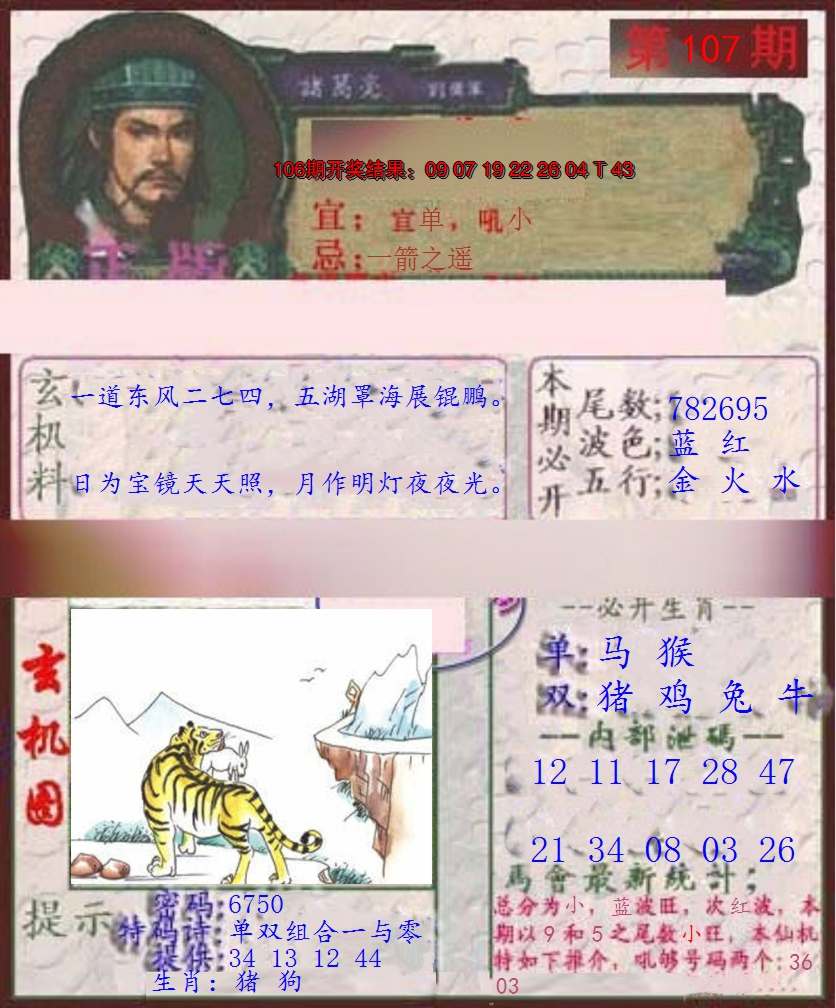 第107期
諸葛亮
106期开奖结果：09 07 19 22 26 04 T 43
宜：宜单，吼小
忌：一箭之遥
正版
玄机料
一道东风二七四，五湖罩海展锟鹏。
日为宝镜天天照，月作明灯夜夜光。
本期必开
尾数;782695
波色;蓝 红
五行;金 火 水
玄机图
--必开生肖--
单:马 猴
双:猪 鸡 兔 牛
——内部泄碼——
12 11 17 28 47
21 34 08 03 26
馬會最新統計；
总分为小，蓝波旺，次红波，本
期以9和5之尾数小旺，本仙机
特如下推介，吼够号码两个:36
03
提示
密码:6750
特码诗:单双组合一与零
提供:34 13 12 44
生肖：猪 狗